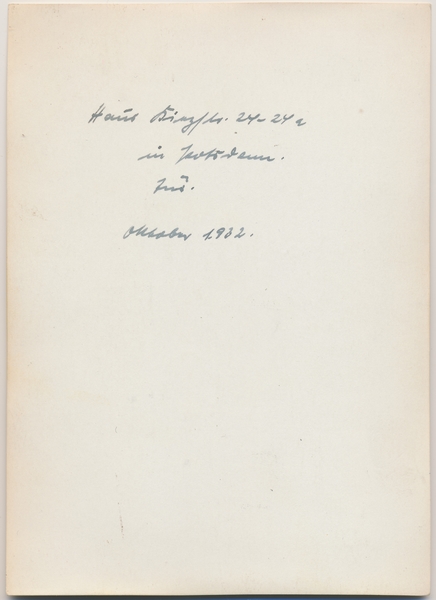 Haus Kiezstr. 24-24a
in Potsdam.
Oktober 1932.